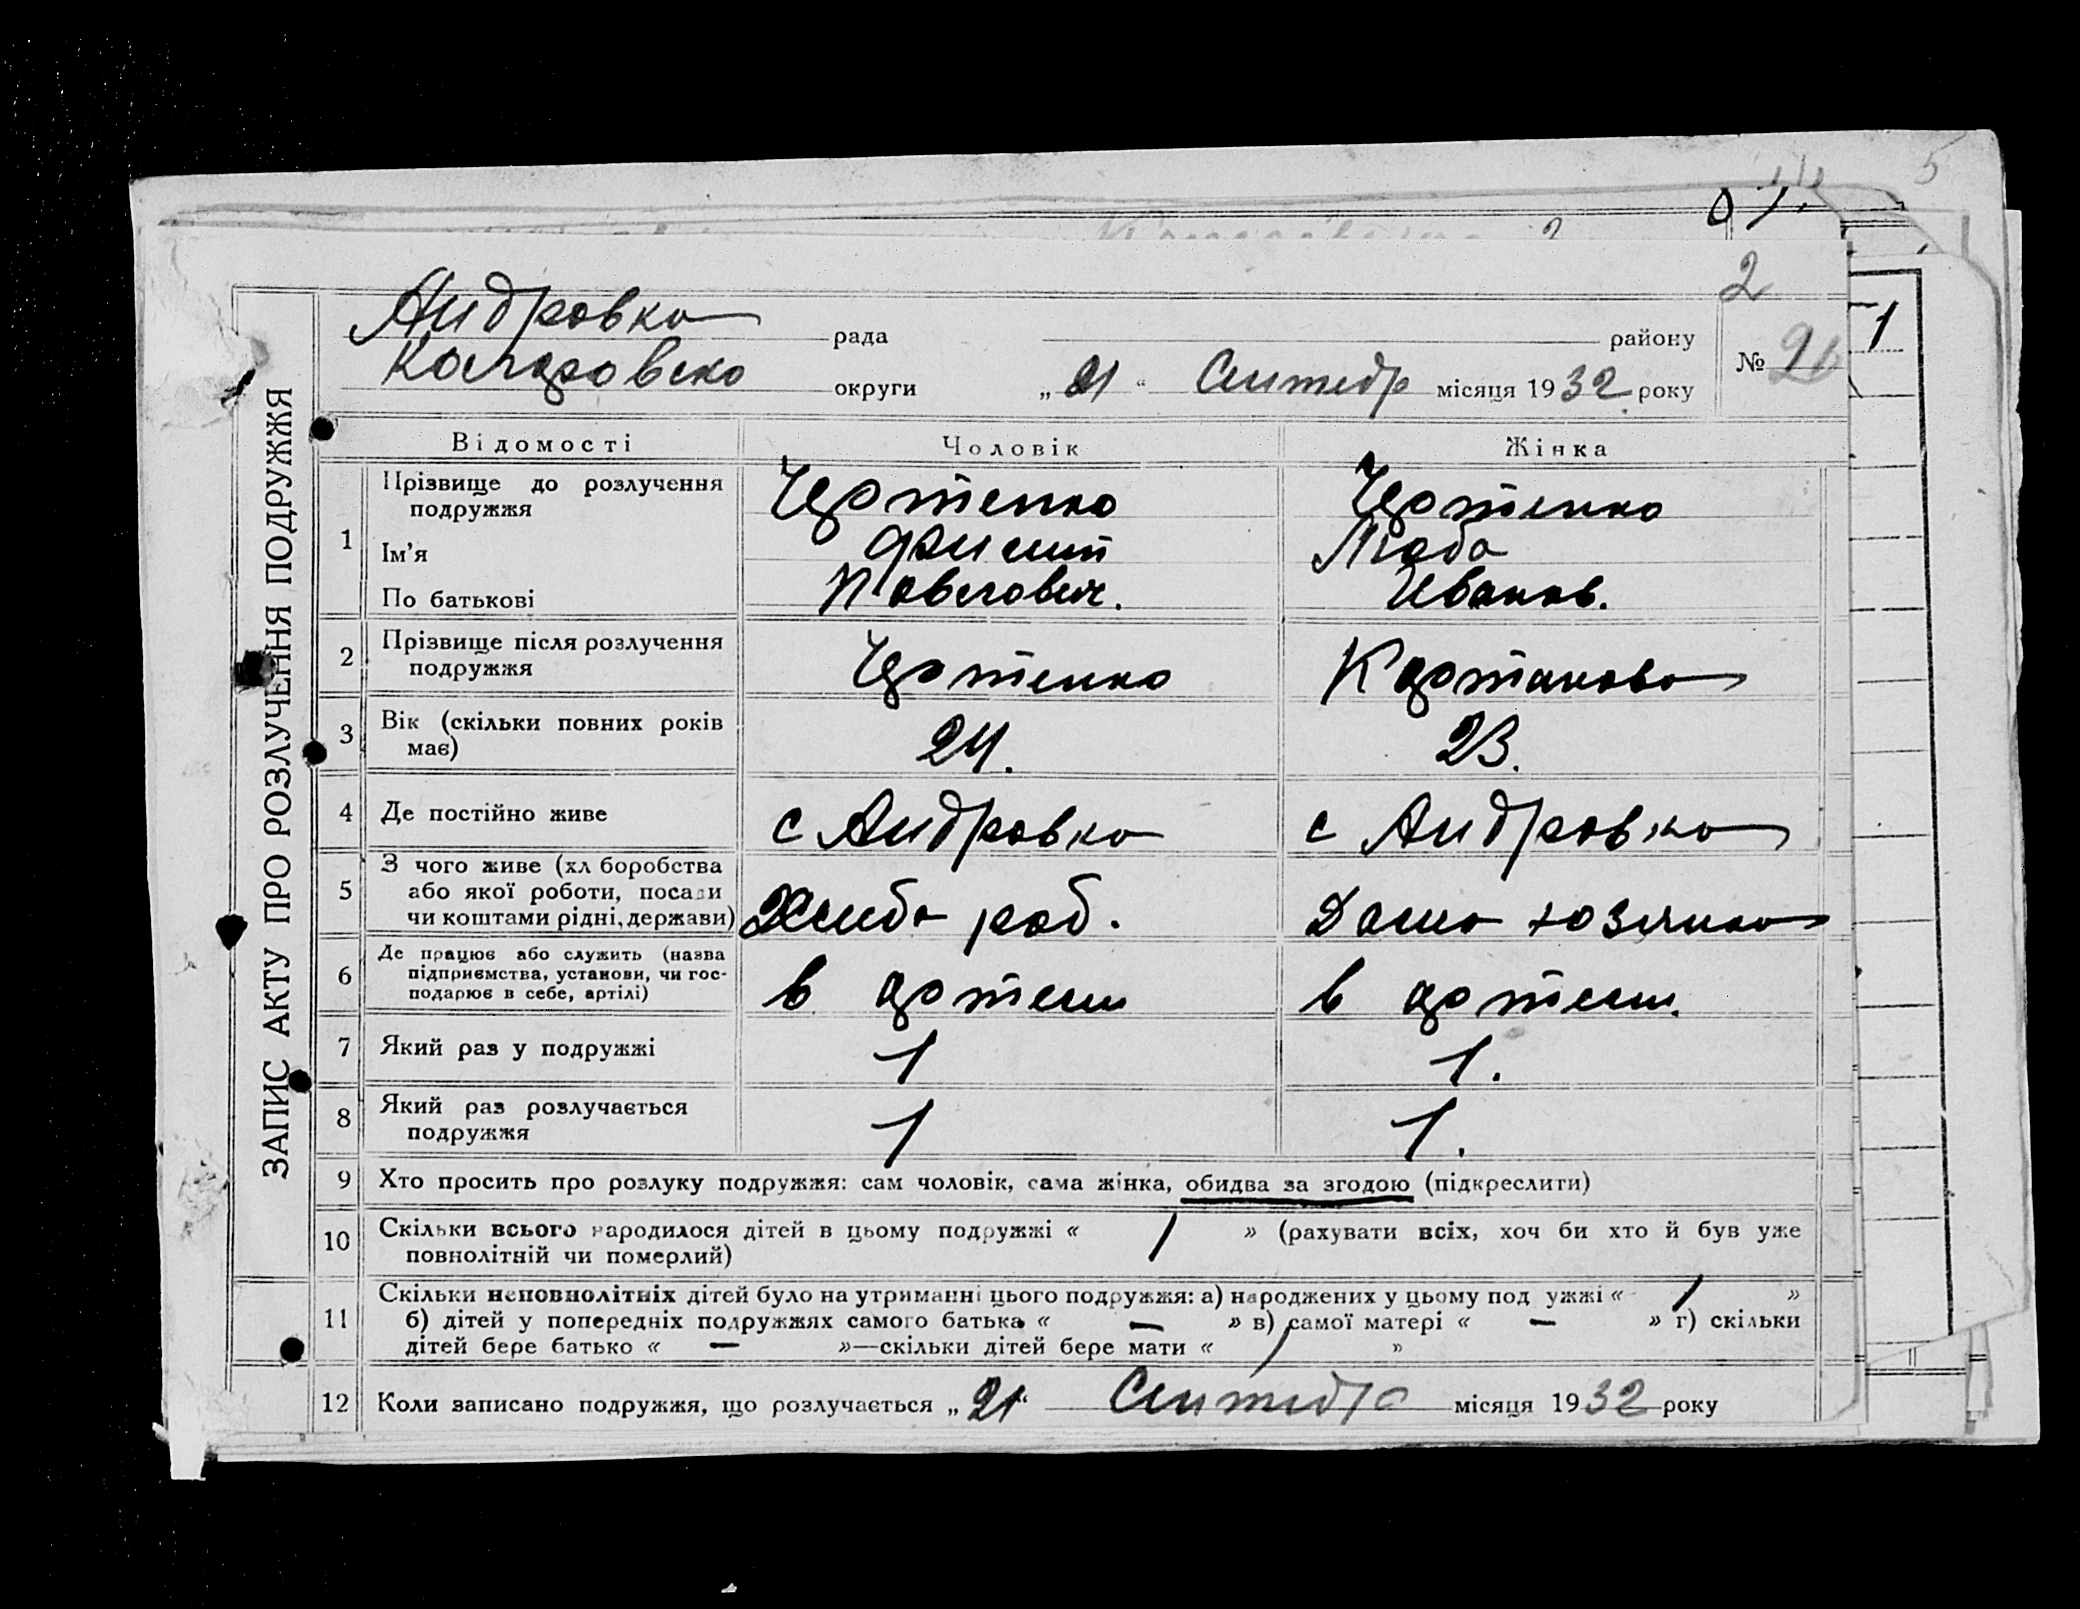 5
2
ЗАПИС АКТУ ПРО РОЗЛУЧЕННЯ ПОДРУЖЖЯ
Андровка рада району
округи „21“ Сентебр місяця 1932 року
№
1
Відомості Чоловік Жінка
1 Прізвище до розлучення подружжя
Ім'я Люба
По батькові Павлович. Иванов.
2 Прізвище після розлучення
подружжя
3 Вік (скільки повних років 24. 23.
має)
4 Де постійно живе с Андровка с Андровка
5 З чого живе (хліборобства
або якої роботи, посади Хлиба роб. Дома хозяика
чи коштами рідні, держави)
6 Де працює або служить (назва
підприємства, установи, чи гос- в артели в артели.
подарює в себе, артілі)
7 Який раз у подружжі 1 1.
8 Який раз розлучається 1 1.
подружжя
9 Хто просить про розлуку подружжя: сам чоловік, сама жінка, обидва за згодою (підкреслити)
10 Скільки всього народилося дітей в цьому подружжі « 1 » (рахувати всіх, хоч би хто й був уже
повнолітній чи померлий)
11 Скільки неповнолітніх дітей було на утриманні цього подружжя: а) народжених у цьому подружжі « 1 »
б) дітей у попередніх подружжях самого батька « — » в) самої матері « — » г) скільки
дітей бере батько « — »—скільки дітей бере мати « 1 »
12 Коли записано подружжя, що розлучається „21“ Сентебра місяця 1932 року